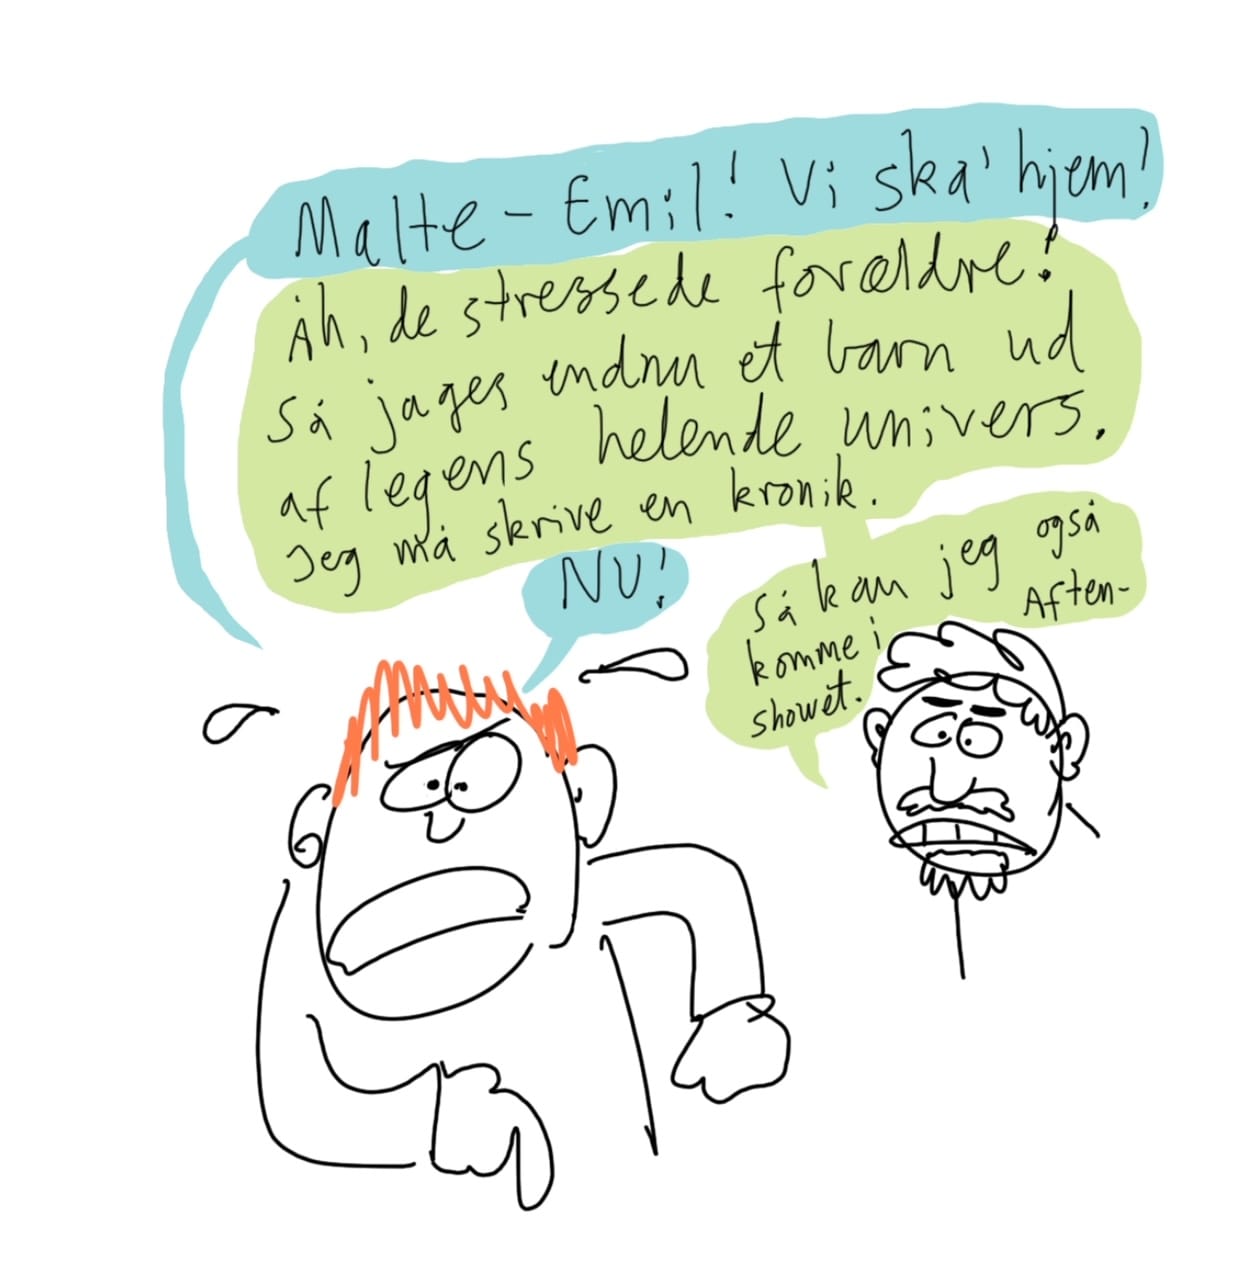 Malte-Emil! Vi ska' hjem!
Åh, de stressede forældre!
Så jages endnu et barn ud
af legens helende univers.
Jeg må skrive en kronik.
NU!
Så kan jeg også
komme i Aften-
showet.